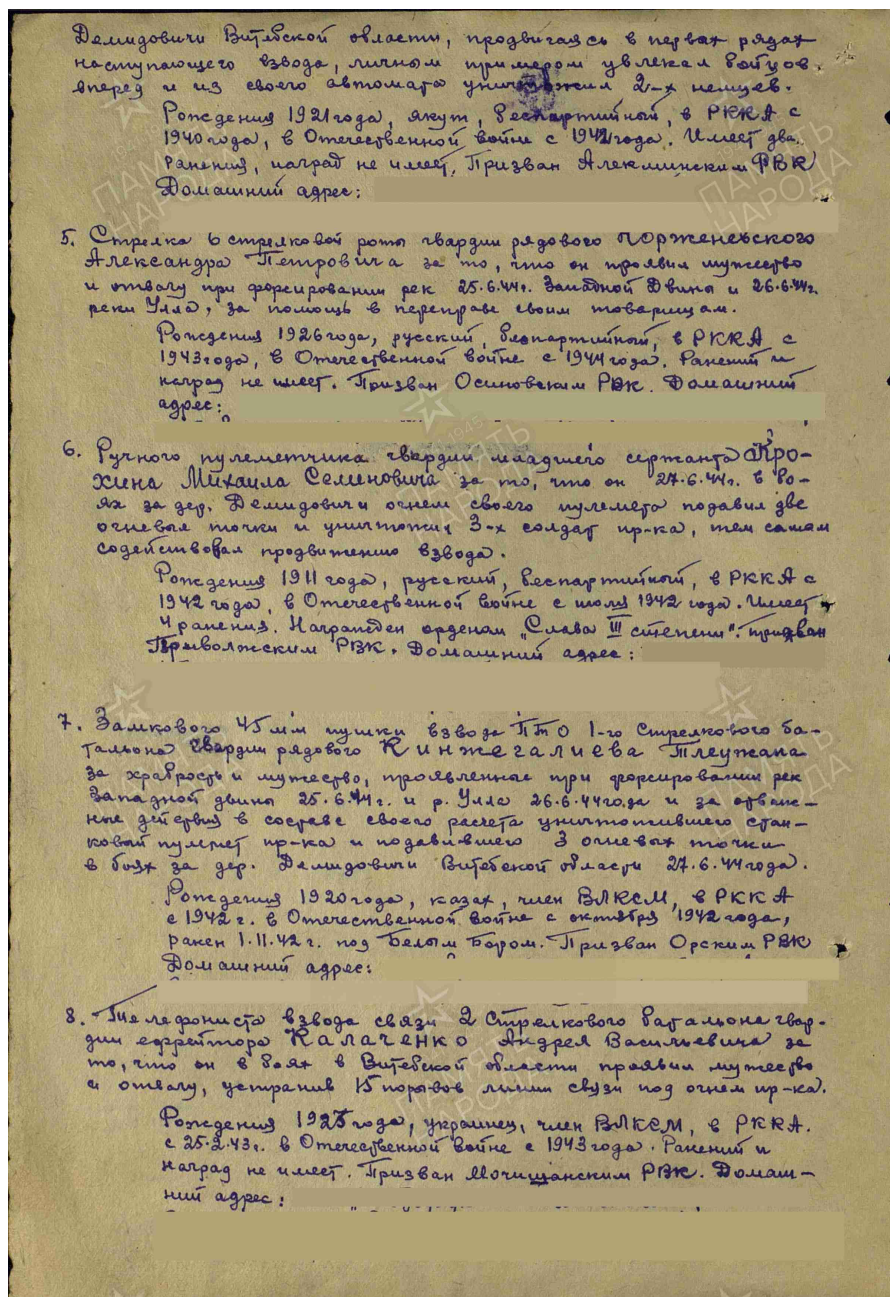 Демидовичи Витебской области, продвигаясь в первых рядах
наступающего взвода, личным примером увлекал бойцов
вперед и из своего автомата уничтожил 2-х немцев.
Рождения 1921 года, якут, беспартийный, в РККА с
1940 года, в Отечественной войне с 1942 года. Имеет два
ранения, наград не имеет. Призван Алекминским РВК
Домашний адрес:
5. Стрелка 6 стрелковой роты гвардии рядового
Александра Петровича за то, что он проявил мужество
и отвагу при форсировании рек 25.6.44г. Западной Двины и 26.6.44г.
реки Улла, за помощь в переправе своим товарищам.
Рождения 1926 года, русский, беспартийный, в РККА с
1943 года, в Отечественной войне с 1944 года. Ранений и
наград не имеет. Призван Осиновским РВК. Домашний
адрес:
6. Ручного пулеметчика гвардии младшего сержанта Кро-
хина Михаила Семеновича за то, что он 27.6.44г. в бо-
ях за дер. Демидовичи огнем своего пулемета подавил две
огневые точки и уничтожил 3-х солдат пр-ка, тем самым
содействовал продвижению взвода.
Рождения 1911 года, русский, беспартийный, в РККА с
1942 года, в Отечественной войне с июля 1942 года. Имеет
4 ранения. Награжден орденом „Слава III степени". Призван
Приволжским РВК. Домашний адрес:
7. Замкового 45 мм пушки взвода ПТО 1-го Стрелкового ба-
тальона гвардии рядового Кинжегалиева Тлеужана
за храбрость и мужество, проявленные при форсировании рек
Западной двины 25.6.44г. и р. Улла 26.6.44года и за отваж-
ные действия в составе своего расчета уничтожившего стан-
ковый пулемет пр-ка и подавившего 3 огневых точки
в боях за дер. Демидовичи Витебской области 27.6.44 года.
Рождения 1920 года, казах, член ВЛКСМ, в РККА
с 1942 г. в Отечественной войне с октября 1942 года,
ранен 1.11.42 г. под Белым Бором. Призван Орским РВК
Домашний адрес:
8. Телефониста взвода связи 2 Стрелкового батальона гвар-
дии ефрейтора Калаченко Андрея Васильевича за
то, что он в боях в Витебской области проявил мужество
и отвагу, устранив 15 порывов линии связи под огнем пр-ка.
Рождения 1925 года, украинец, член ВЛКСМ, в РККА.
с 25.2.43г. в Отечественной войне с 1943 года. Ранений и
наград не имеет. Призван Мочищанским РВК. Домаш-
ний адрес: